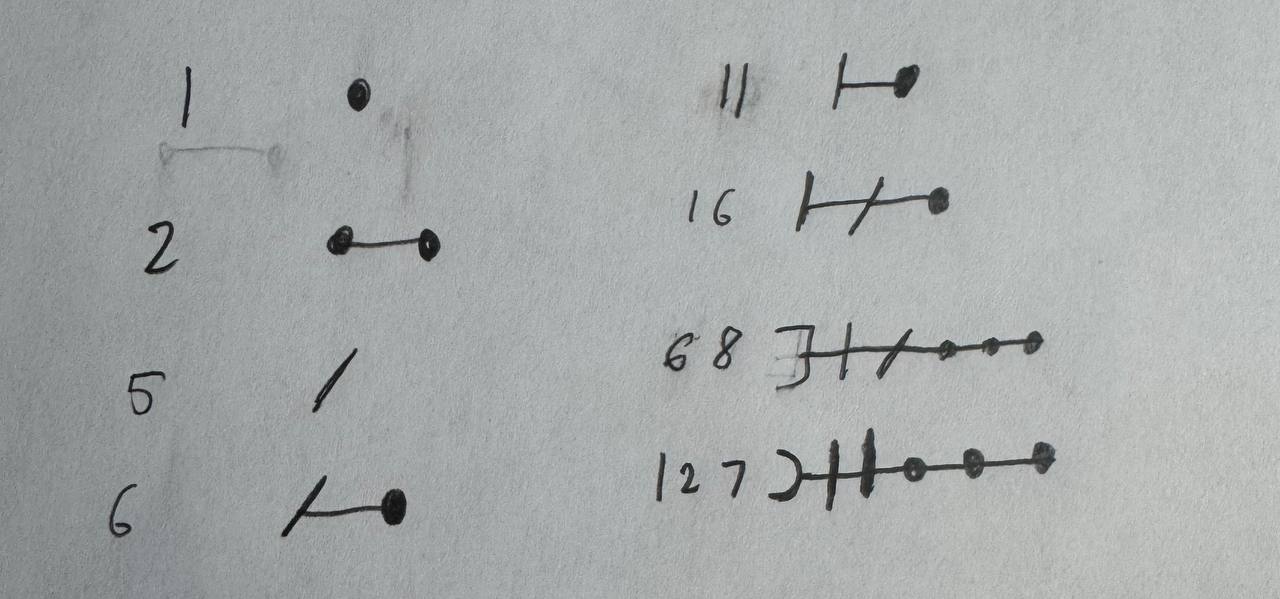 1
2
5
6
11
16
68
127